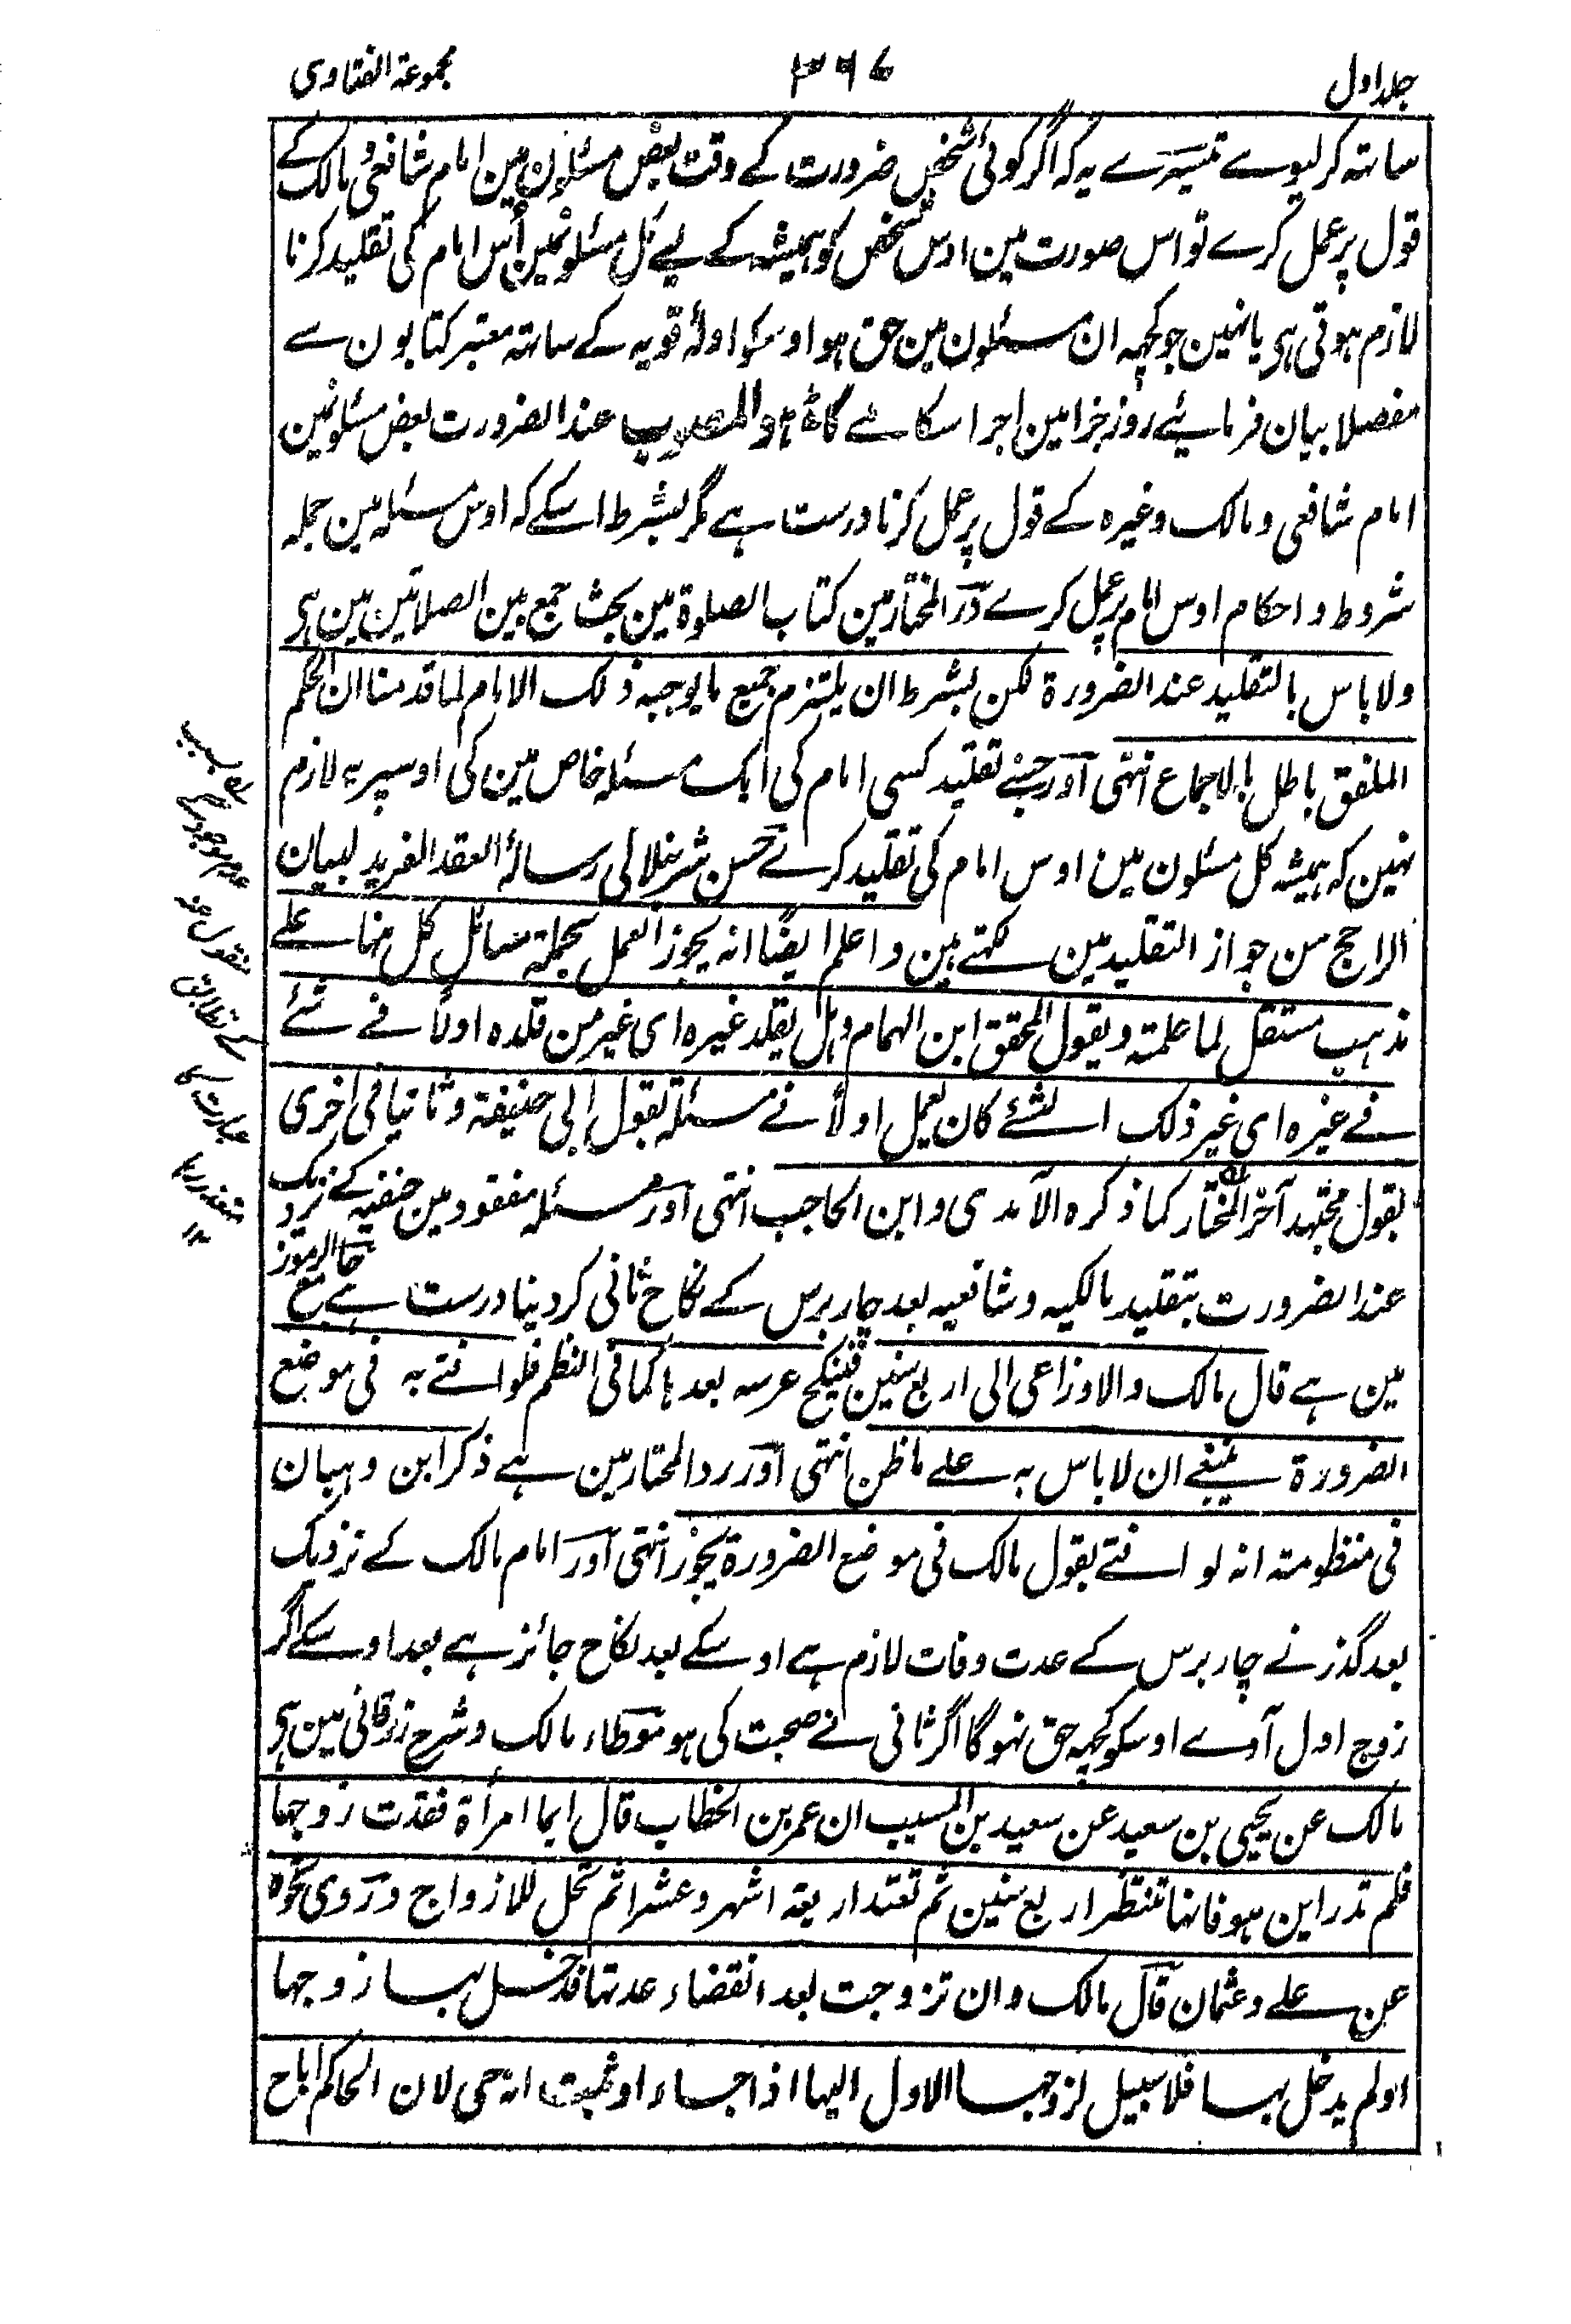 جلد اول
۳۶۷
مجموعۃ الفتاوی
ساتھہ کرلیوے تیسرے یہ کہ اگر کوئی شخص ضرورت کے وقت بعض مسئلون مین امام شافعی و مالک کے
قول پر عمل کرے تو اس صورت مین اوس شخص کو ہمیشہ کے لیے کل مسئلونمین اُس امام کی تقلید کرنا
لازم ہوتی ہی یا نہین جو کچھہ ان مسئلون مین حق ہو اوسکو ادلۂ قویہ کے ساتھہ معتبر کتابون سے
مفصلا بیان فرمایئے روز جزا مین اجر اسکا ملے گا ھو المصوب عند الضرورت بعض مسئلونمین
امام شافعی و مالک وغیرہ کے قول پر عمل کرنا درست ہے مگر بشرط اسکے کہ اوس مسئلہ مین جملہ
شروط و احکام اوس امام پر عمل کرے در المختار مین کتاب الصلوۃ مین بحث جمع بین الصلاتین مین ہی
ولا باس بالتقلید عند الضرورۃ لکن بشرط ان یلتزم جمیع ما یوجبہ ذلک الامام لما قدمنا ان الحکم
الملفق باطل بالاجماع انتہی اور جسنے تقلید کسی امام کی ایک مسئلہ خاص مین کی اوسپر یہ لازم
نہین کہ ہمیشہ کل مسئلون مین اوس امام کی تقلید کرے حسن شرنبلالی رسالۂ العقد الفرید لبیان
الراجح من جواز التقلید مین لکھتے ہین و اعلم ایضًا انہ یجوز العمل بجملۃ مسائل کل منہا علے
مذہب مستقل لما علمتہ و یقول المحقق ابن الہمام وہل یقلد غیرہ ای غیر من قلدہ اولًا فے شئے
فے غیرہ ای غیر ذلک الشئے کان یعمل اولًا فے مسئلۃ بقول ابی حنیفۃ و ثانیا فی اخری
بقول مجتہد آخر المختار کما ذکرہ الآمدی و ابن الحاجب انتہی اور مسئلہ مفقود مین حنفیہ کے نزدیک
عند الضرورت بتقلید مالکیہ و شافعیہ بعد چار برس کے نکاح ثانی کر دینا درست ہے جامع الرموز
مین ہے قال مالک والاوزاعی الی اربع سنین فینکح عرسہ بعدہا کما فی النظم فلو افتے بہ فی موضع
الضرورۃ ینبغے ان لا باس بہ علے ما ظن انتہی اور رد المحتار مین ہے ذکر ابن وہبان
فی منظومتہ انہ لو افتے بقول مالک فی موضع الضرورۃ یجوز انتہی اور امام مالک کے نزدیک
بعد گذرنے چار برس کے عدت وفات لازم ہے اوسکے بعد نکاح جائز ہے بعد اوسکے اگر
زوج اول آوے اوسکو کچھہ حق نہوگا اگر ثانی نے صحبت کی ہو موطاء مالک و شرح زرقانی مین ہی
مالک عن یحیی بن سعید عن سعید بن المسیب ان عمر بن الخطاب قال ایما امرأۃ فقدت زوجہا
فلم تدر این ہو فانہا تنتظر اربع سنین ثم تعتد اربعۃ اشہر و عشرا ثم تحل للازواج و روی نحوہ
عن علے و عثمان قال مالک و ان تزوجت بعد انقضاء عدتہا فدخل بہا زوجہا
اولم یدخل بہا فلا سبیل لزوجہا الاول الیہا اذا جاء او ثبت انہ حی لان الحاکم اباح
بسبب
عدم موجودگی
منقول عنہ
کے تطابق
عبارت کا
متعذر رہا
۱۲